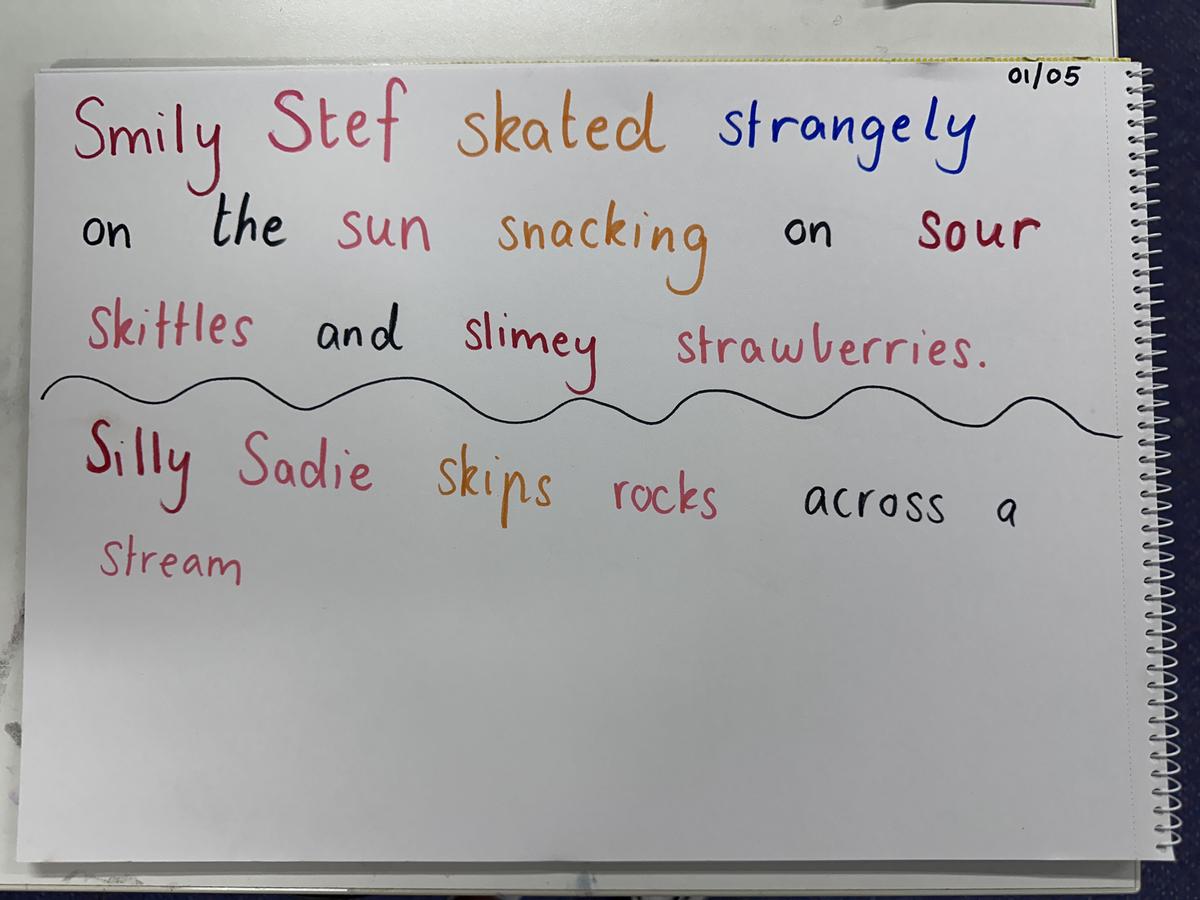 01/05
Smily Stef skated strangely
on the sun snacking on sour
skittles and slimey strawberries.
Silly Sadie skips rocks across a
stream